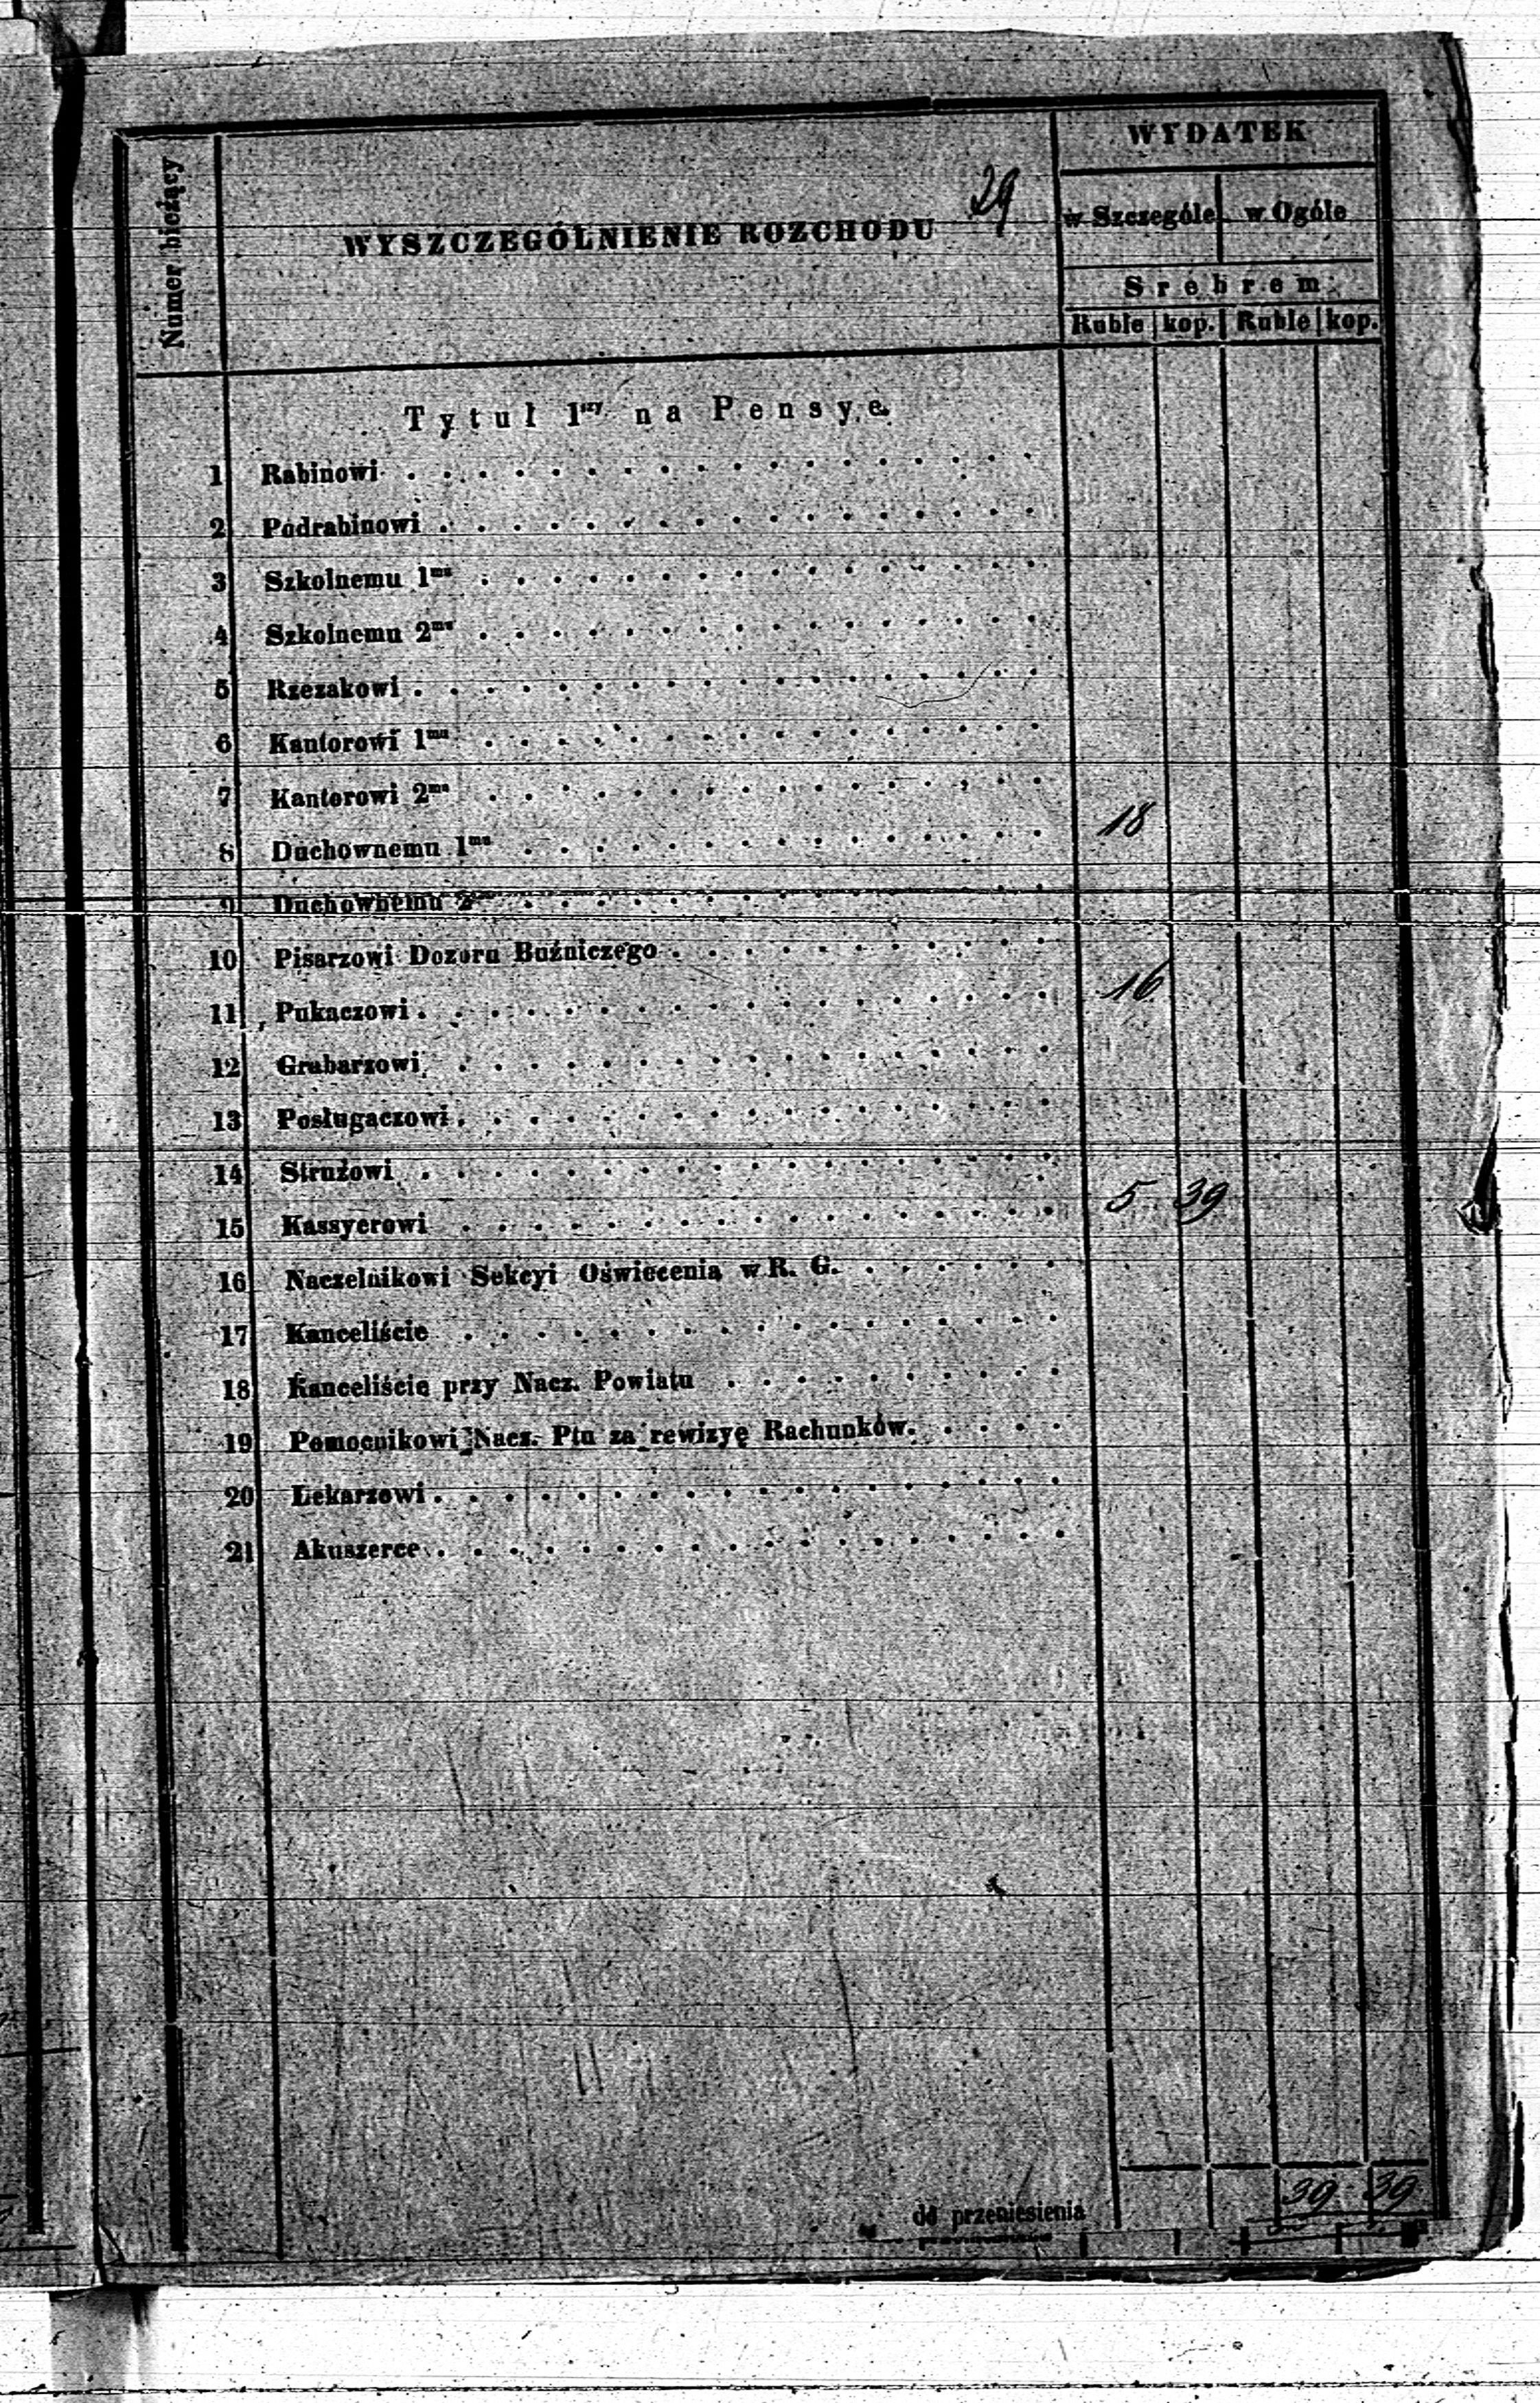 29
WYDATEK
Numer bieżący
WYSZCZEGÓLNIENIE ROZCHODU
w Szczególe w Ogóle
Srebrem
Ruble kop. Ruble kop.
Tytuł 1szy na Pensye.
1 Rabinowi
2 Podrabinowi
3 Szkolnemu 1mu
4 Szkolnemu 2mu
5 Rzezakowi
6 Kantorowi 1mu
7 Kantorowi 2mu
8 Duchownemu 1mu 18
9 Duchownemu 2mu
10 Pisarzowi Dozoru Bużniczego
11 Pukaczowi 16
12 Grabarzowi
13 Posługaczowi
14 Strużowi
15 Kassyerowi 5 39
16 Naczelnikowi Sekcyi Oświecenia w R. G.
17 Kanceliście
18 Kanceliście przy Nacz. Powiatu
19 Pomocnikowi Nacz. Ptu za rewizyę Rachunków.
20 Lekarzowi
21 Akuszerce
do przeniesienia 39 39